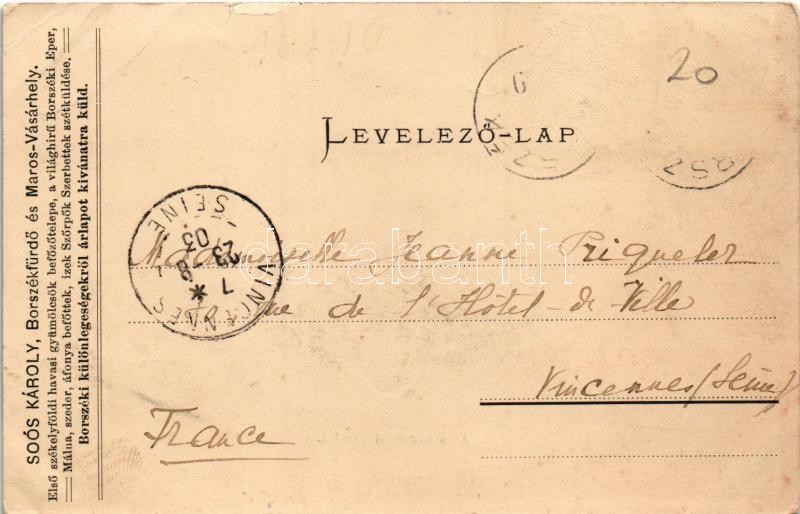 SOÓS KÁROLY, Borszékfürdő és Maros-Vásárhely.
Első székelyföldi havasi gyümölcsök befőzőtelepe, a világhirű Borszéki Eper,
Málna, szeder, áfonya befőttek, izek Szörpök Szerbettek szétküldése.
Borszéki különlegességekről árlapot kivánatra küld.
20
LEVELEZŐ-LAP
VINCENNES
SEINE
7
23 -8
03
Mademoiselle Jeanne
rue de l'Hôtel-de Ville
Vincennes (Seine)
France
darabanth